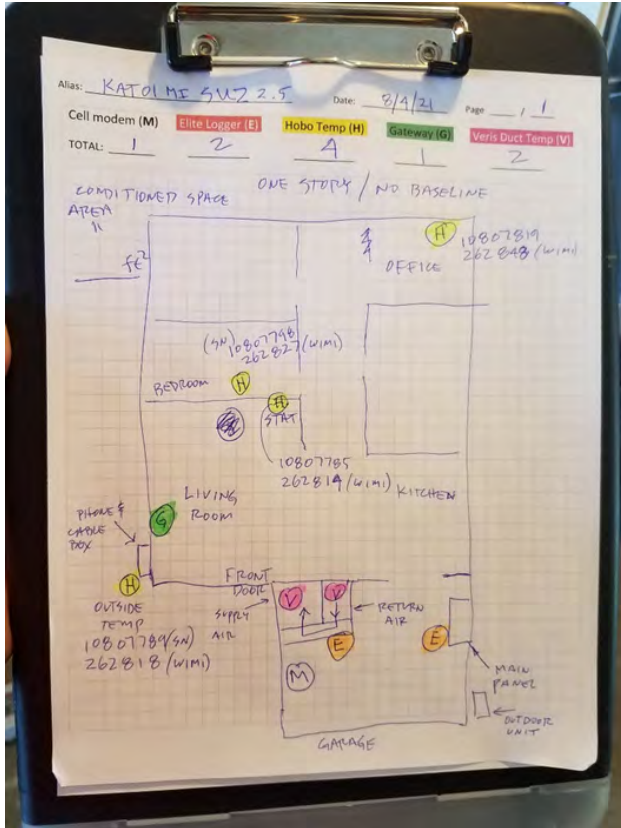 Alias: KATOI MI SUZ 2.5 Date: 8/4/21 Page 1 / 1
Cell modem (M) Elite Logger (E) Hobo Temp (H) Gateway (G) Veris Duct Temp (V)
TOTAL: 1 2 4 1 2
ONE STORY / NO BASELINE
CONDITIONED SPACE
AREA
ft²
H 10807819
262848 (WIMI)
OFFICE
(SN) 10807798
262827 (WIMI)
BEDROOM H
H
STAT
10807785
262814 (WIMI)
KITCHEN
LIVING
ROOM
G
PHONE &
CABLE
BOX
H
OUTSIDE
TEMP
10807789 (SN)
262818 (WIMI)
FRONT
DOOR
SUPPLY
AIR
V V
RETURN
AIR
E E
M
MAIN
PANEL
OUTDOOR
UNIT
GARAGE